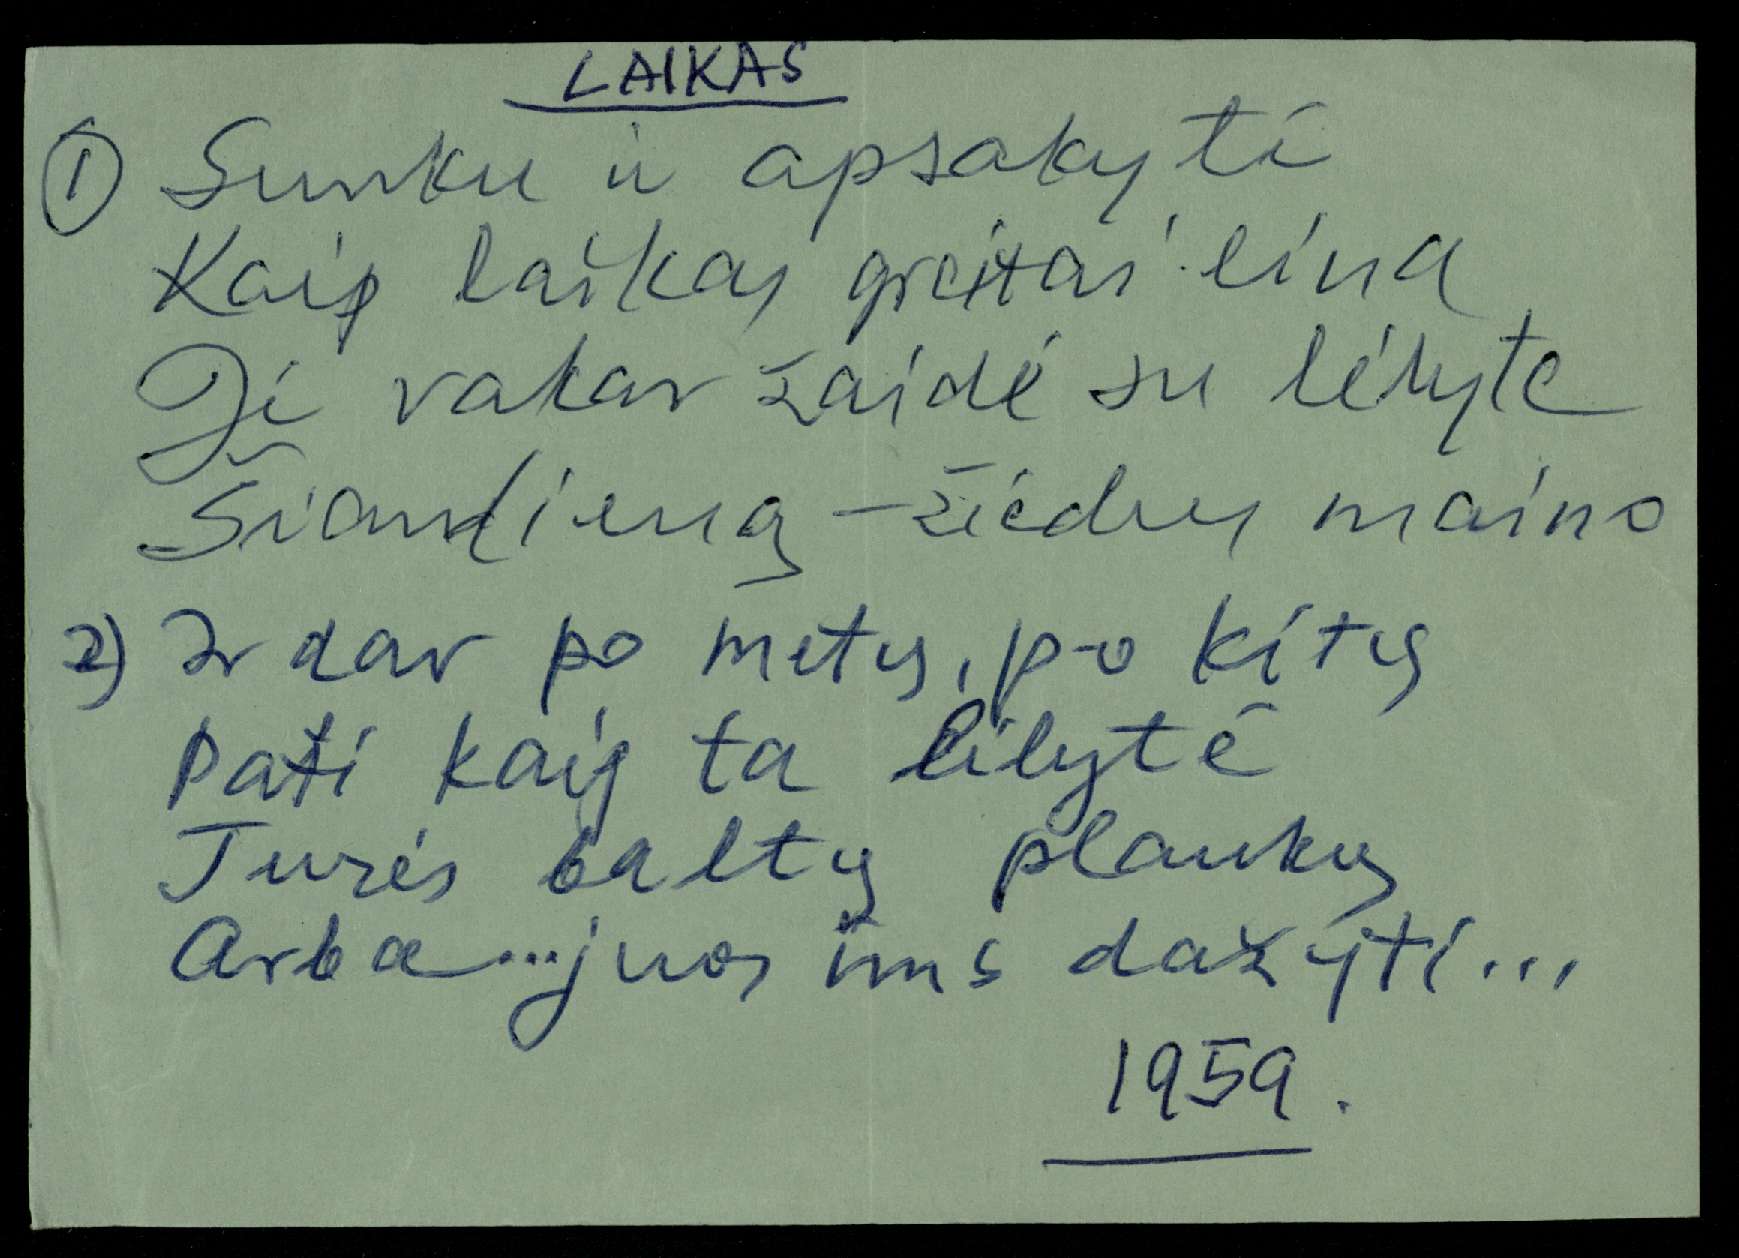 LAIKAS
① Sunku ir apsakyti
Kaip laikas greitai eina
Ji vakar žaidė su lėlyte
Šiandieną – žiedus maino
2) Ir dar po metų, po kitų
Pati kaip ta lėlytė
Turės baltų plaukų
Arba... juos ims dažyti...
1959.